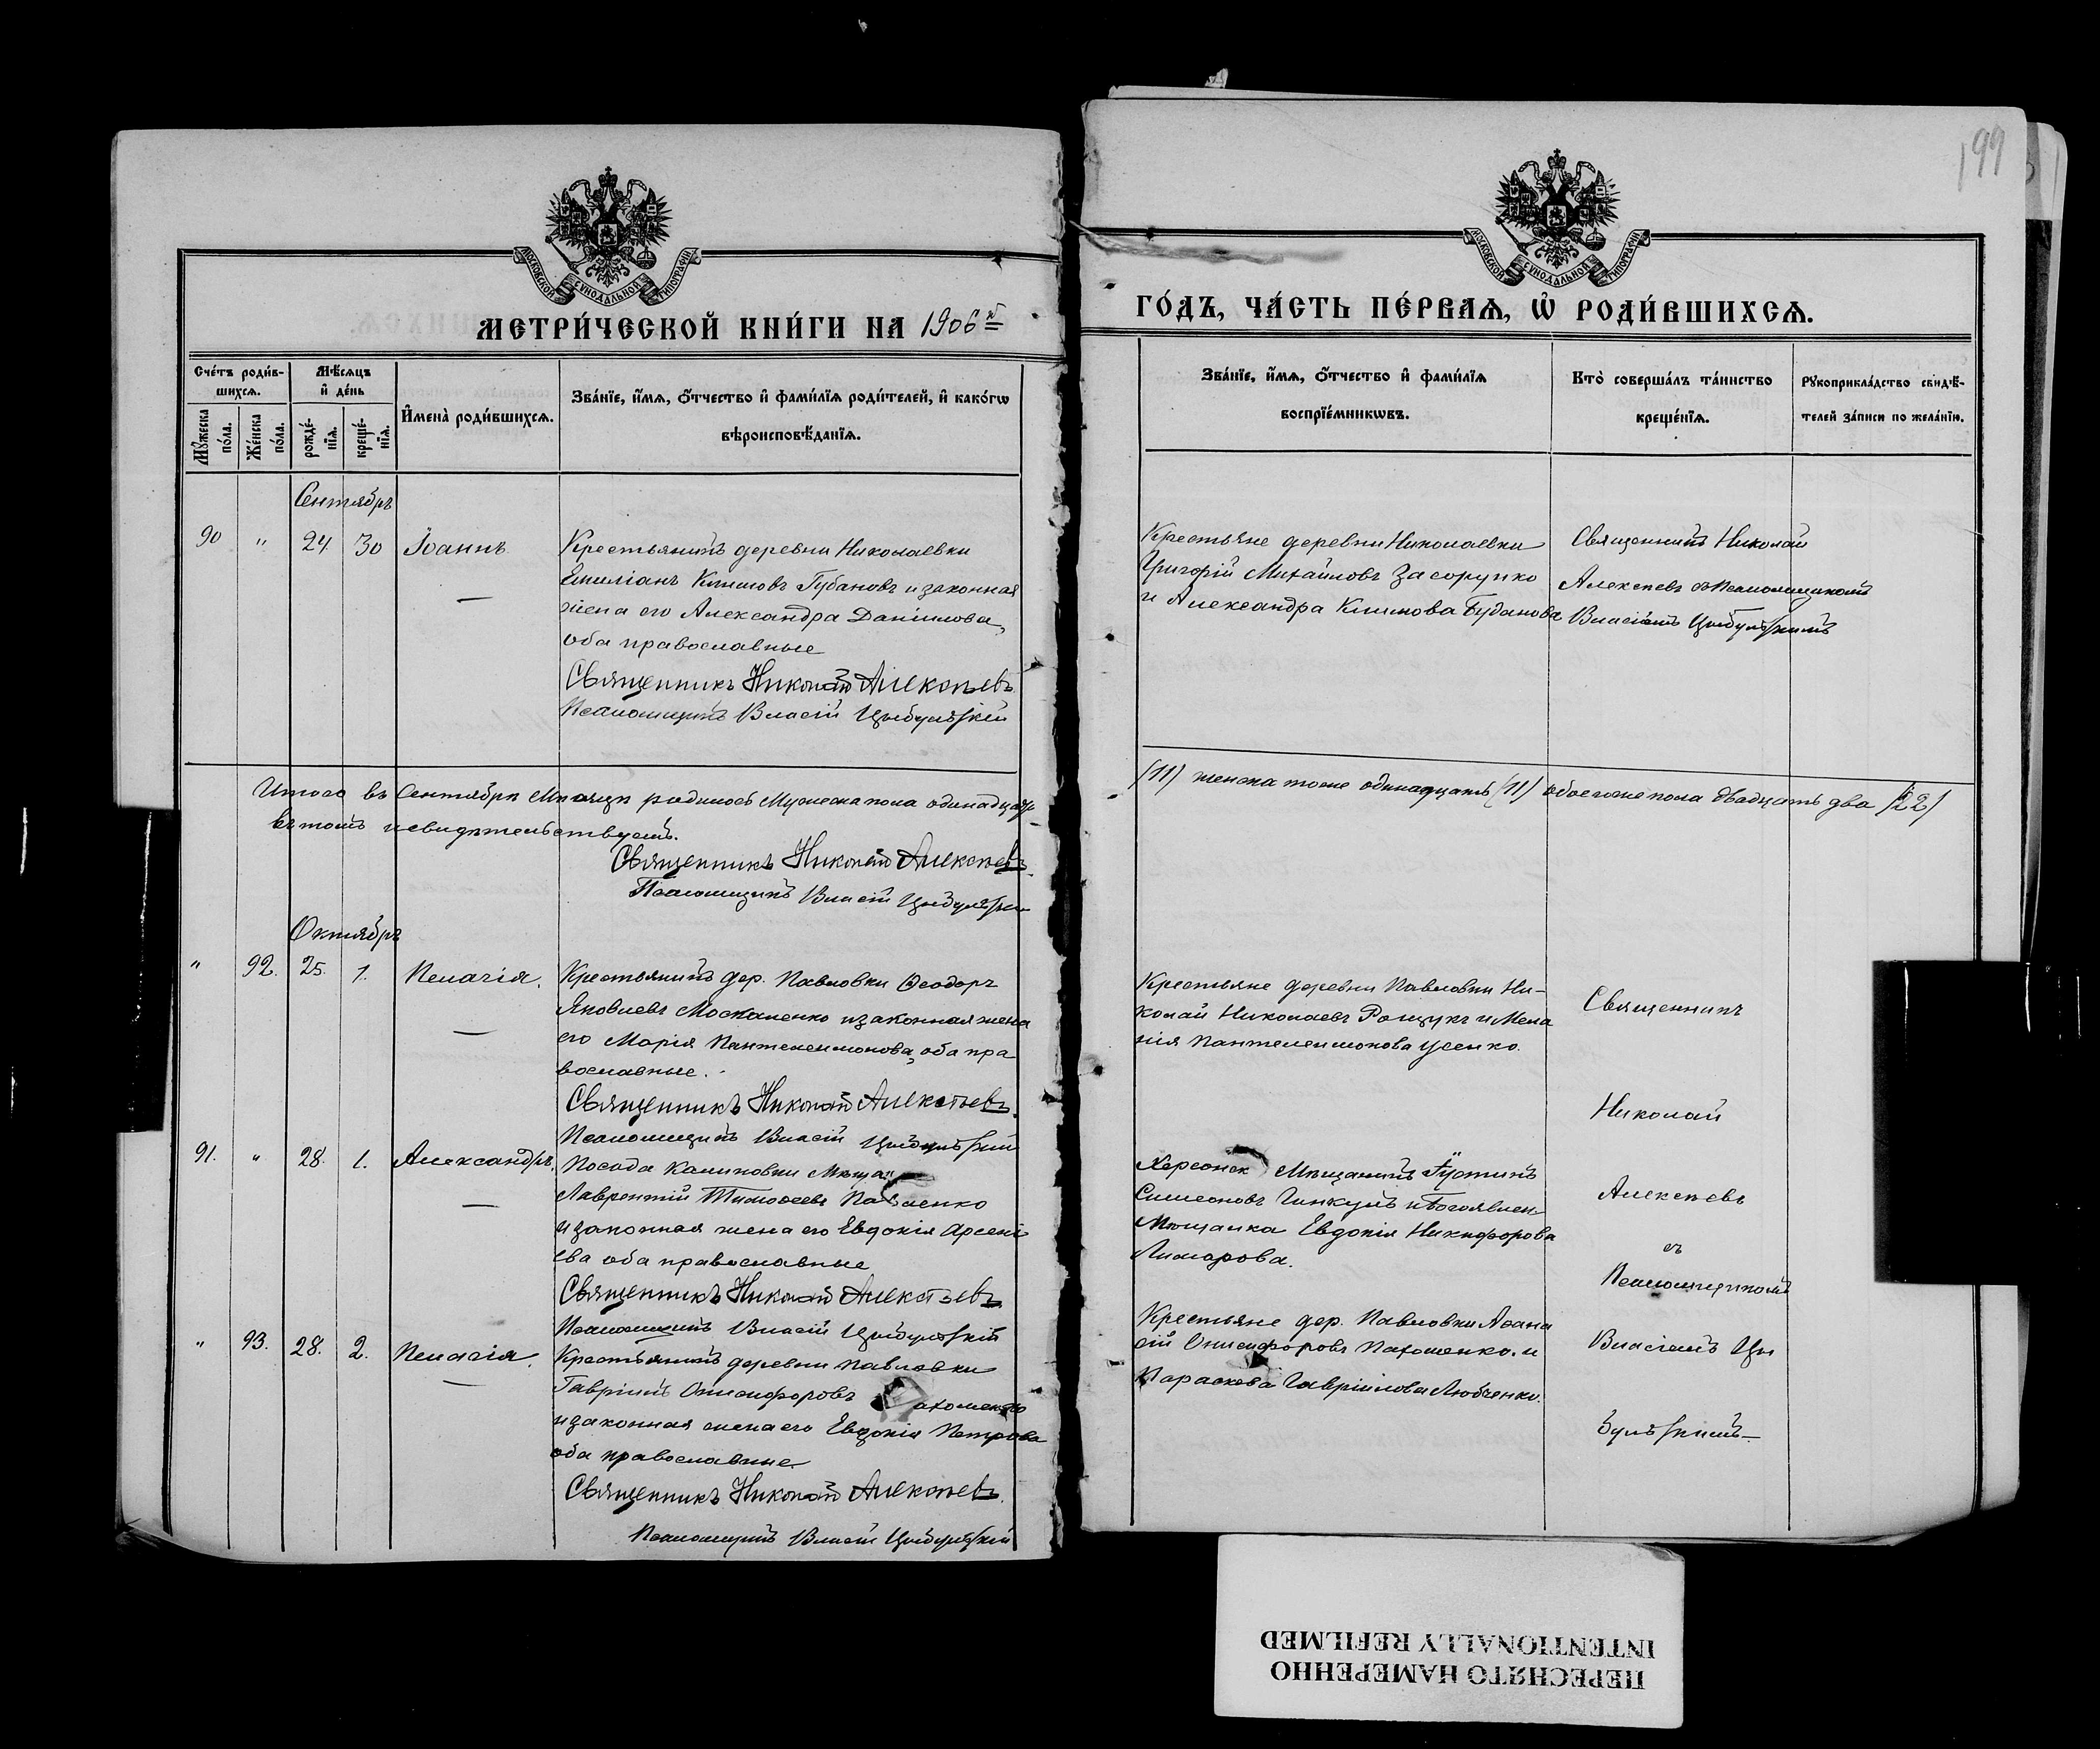 199
МОСКОВСКОЙ СѴНОДАЛЬНОЙ ТИПОГРАФІИ
МОСКОВСКОЙ СѴНОДАЛЬНОЙ ТИПОГРАФІИ
МЕТРИ́ЧЕСКОЙ КНИ́ГИ НА 1906й
ГО́ДЪ, ЧА́СТЬ ПЕ́РВАѦ, Ѽ РОДИ́ВШИХСѦ.
Сче́тъ роди́в-
шихсѧ.
Мꙋ́жеска по́ла.
Же́нска по́ла.
Мѣ́сѧцъ
и҆ де́нь
рожде́-
нїѧ.
креще́-
нїѧ.
И҆мена̀ роди́вшихсѧ.
Зва́нїе, и҆́мѧ, ѻ҆́тчество и҆ фами́лїѧ роди́телей, и҆ како́гѡ
вѣроисповѣ́данїѧ.
Зва́нїе, и҆́мѧ, ѻ҆́тчество и҆ фами́лїѧ
воспрїе́мникѡвъ.
Кто̀ соверша́лъ та́инство
креще́нїѧ.
Рꙋкоприкла́дство свидѣ́-
телей за́писи по жела́нїю.
Сентябрь
90 " 24 30 Іоаннъ
Крестьянинъ деревни Николаевки
Емиліанъ Климовъ Губановъ и законная
жена его Александра Даніилова,
оба православные
Священникъ Николай Алексѣевъ
Псаломщикъ Власій Цыбульскій
Крестьяне деревни Николаевки
Григорій Михайловъ Засорунко
и Александра Климова Буданова
Священникъ Николай
Алексѣевъ съ Псаломщикомъ
Власіемъ Цыбульскимъ
Итого въ Сентябрѣ Мѣсяцѣ родилось Мужеска пола одинадцать
(11) женска тоже одинадцать (11) обоего же пола двадцать два (22)
въ томъ и свидѣтельствуемъ.
Священникъ Николай Алексѣевъ.
Псаломщикъ Власій Цыбульскій
Октябрь
" 92. 25. 1. Пелагія.
Крестьянинъ дер. Павловки Ѳеодоръ
Яковлевъ Москаленко и законная жена
его Марія Пантелеимонова, оба пра
вославные.
Священникъ Николай Алексѣевъ.
Псаломщикъ Власій Цыбульскій
Крестьяне деревни Павловки Ни-
колай Николаевъ Рощукъ и Мела
нія Пантелеимонова Усенко.
91. " 28. 1. Александръ.
Посада Калиновки Мѣща
Лаврентій Тимоѳеевъ Павленко
и законная жена его Евдокія Арсені
ева оба православные
Священникъ Николай Алексѣевъ.
Псаломщикъ Власій Цыбульскій
Херсонск Мѣщанинъ Іустинъ
Симеоновъ и Богоявлен
Мѣщанка Евдокія Никифорова
Лимарова.
" 93. 28. 2. Пелагія.
Крестьянинъ деревни Павловки
Гавріилъ Онисифоровъ Пахоменко
и законная жена его Евдокія Петрова
оба православные
Священникъ Николай Алексѣевъ.
Псаломщикъ Власій Цыбульскій
Крестьяне дер. Павловки Аѳана
сій Онисифоровъ Пахоменко. и
Параскева Гавріилова Любченко.
Священникъ
Николай
Алексѣевъ
съ
Псаломщикомъ
Власіемъ Цы
бульскимъ
ПЕРЕСНЯТО НАМЕРЕННО
INTENTIONALLY REFILMED